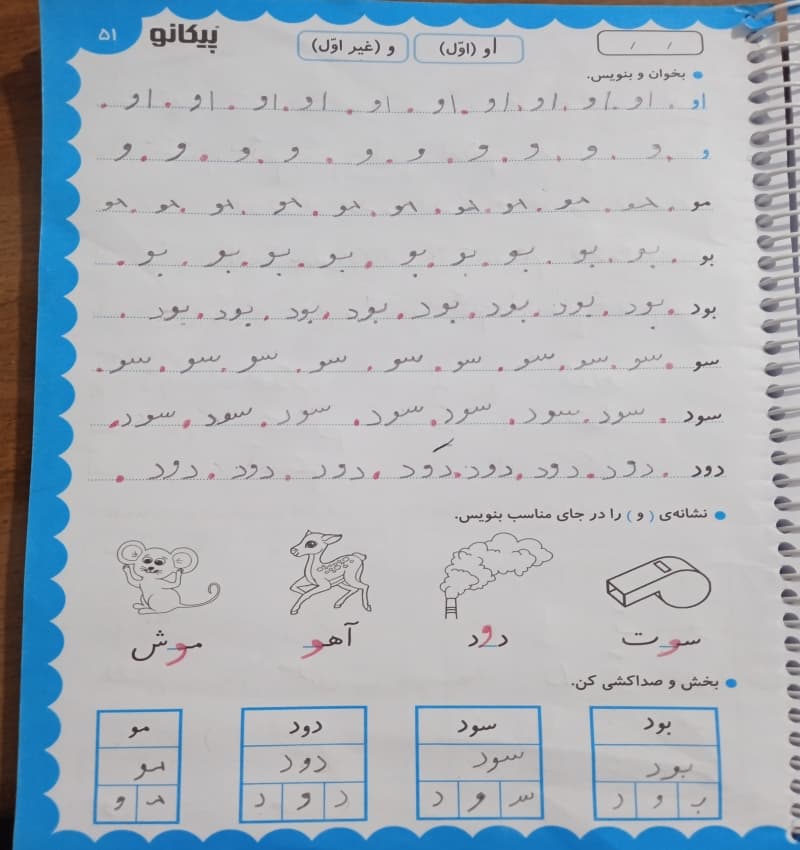 پیکانو ۵۱
او (اوّل) و (غیر اوّل)
/ /
بخوان و بنویس.
او . او . او . او . او . او . او . او . او . او . او .
و . و . و . و . و . و . و . و . و . و . و
مو . مو . مو . مو . مو . مو . مو . مو . مو . مو . مو
بو . بو . بو . بو . بو . بو . بو . بو . بو . بو .
بود . بود . بود . بود . بود . بود . بود . بود . بود .
سو . سو . سو . سو . سو . سو . سو . سو . سو . سو .
سود . سود . سود . سود . سود . سود . سود . سود .
دود . دود . دود . دود . دود . دود . دود . دود .
نشانه‌ی ( و ) را در جای مناسب بنویس.
سوت دود آهو موش
بخش و صداکشی کن.
بود سود دود مو
بود سود دود مو
بـ و د سـ و د د و د مـ و